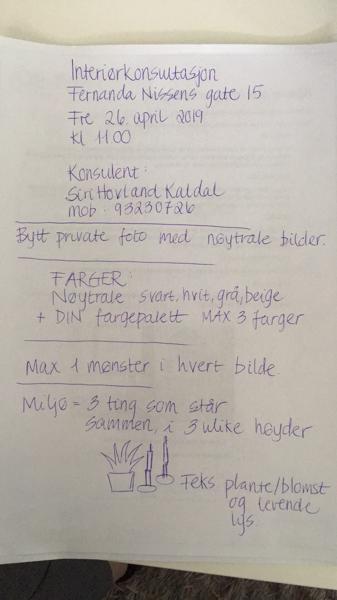 Interiørkonsultasjon
Fernanda Nissens gate 15
Fre 26. april 2019
Kl 11 00
Konsulent:
Siri Hovland Kaldal
mob: 93230726
Bytt private foto med nøytrale bilder.
FARGER:
Nøytrale svart, hvit, grå, beige
+ DIN fargepalett MAX 3 farger
Max 1 mønster i hvert bilde
Miljø = 3 ting som står
sammen, i 3 ulike høyder
Feks plante/blomst
og levende
lys